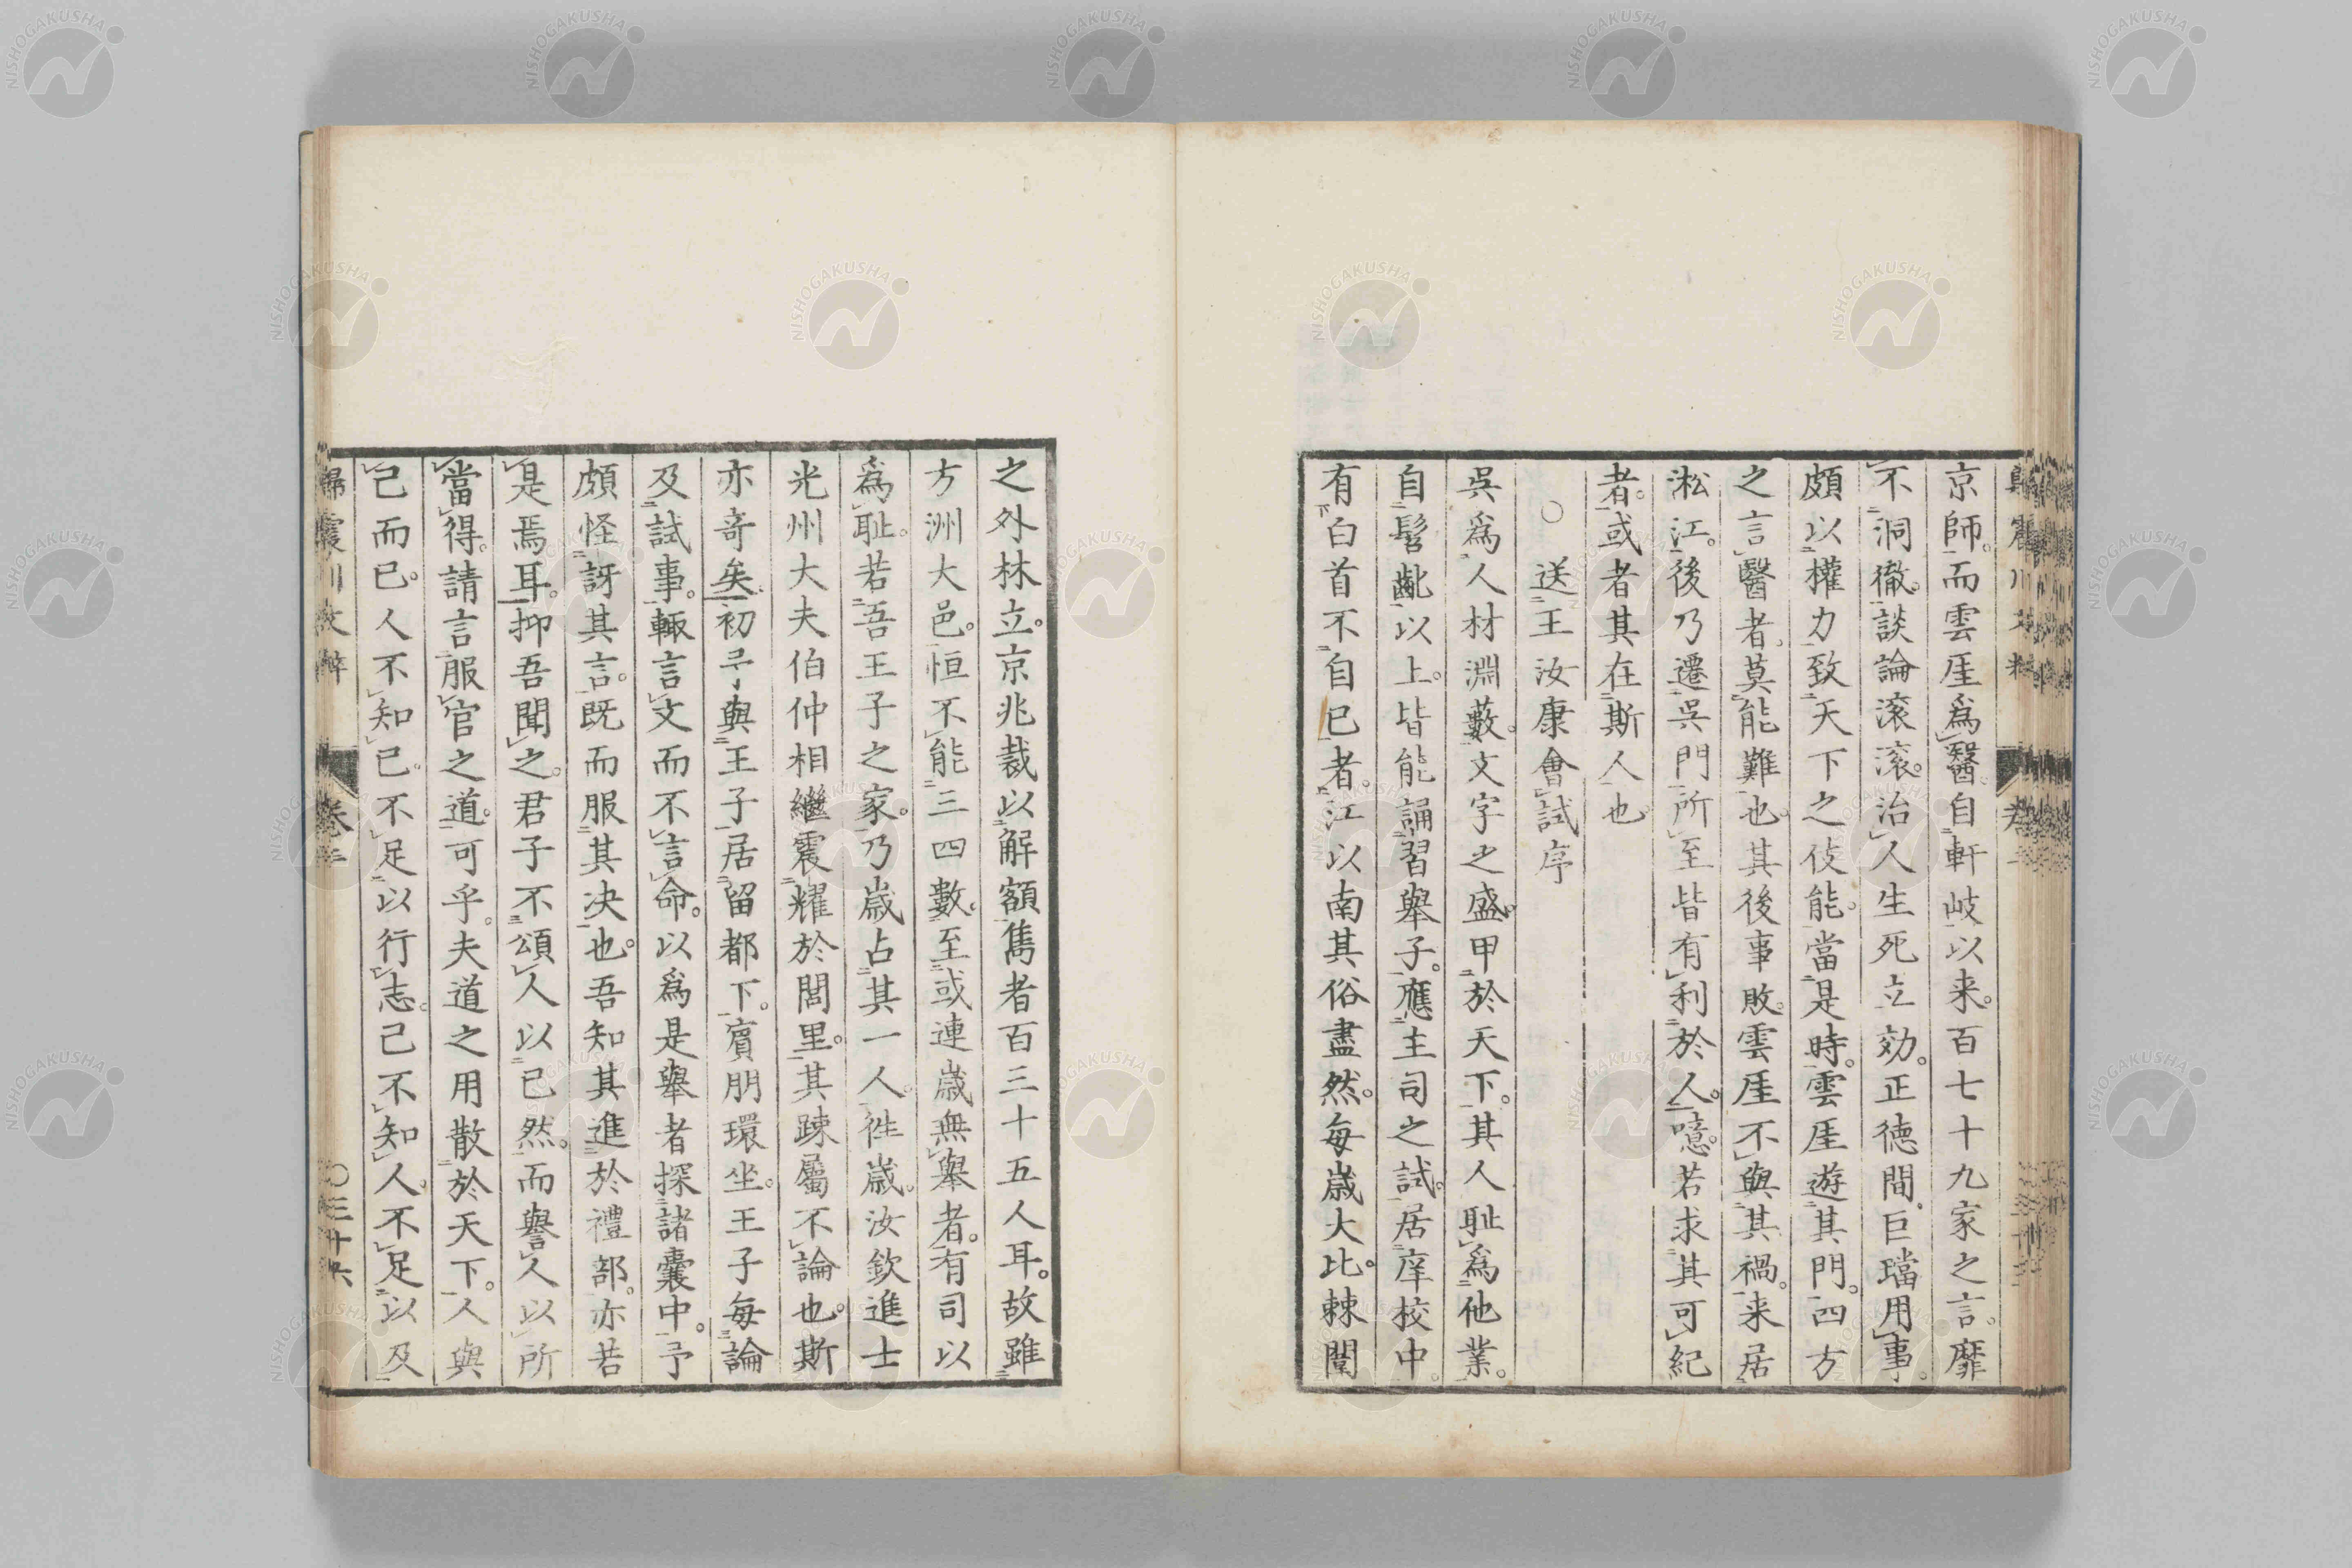 京師。而雲厓爲醫。自軒岐以来。百七十九家之言。靡
不洞徹。談論滚滚。治人生死立効。正德間。巨璫用事。
頗以權力致天下之伎能。當是時。雲厓遊其門。四方
之言醫者。莫能難也。其後事敗。雲厓不與其禍。来居
淞江。後乃遷吳門。所至皆有利於人。噫。若求其可紀
者。或者其在斯人也
○送王汝康會試序
吳爲人材淵藪。文字之盛。甲於天下。其人耻爲他業。
自髫齔以上。皆能誦習舉子。應主司之試。居庠校中。
有白首不自已者。江以南其俗盡然。每歲大比。棘闈
之外林立。京兆裁以解額雋者百三十五人耳。故雖
方洲大邑。恒不能三四數。至或連歲無舉者。有司以
爲耻。若吾王子之家。乃歲占其一人。徃歲。汝欽進士
光州大夫伯仲相繼震耀於閭里。其踈屬不論也。斯
亦竒矣。初予與王子居留都下。賔朋環坐。王子每論
及試事。輙言文而不言命。以爲是舉者探諸囊中。予
頗怪訝其言。既而服其决也。吾知其進於禮部。亦若
是焉耳。抑吾聞之。君子不頌人以已然。而譽人以所
當得。請言服官之道。可乎。夫道之用散於天下。人與
己而已。人不知己。不足以行志。己不知人。不足以及
歸震川文粹 卷二 〇三十六
NISHOGAKUSHA